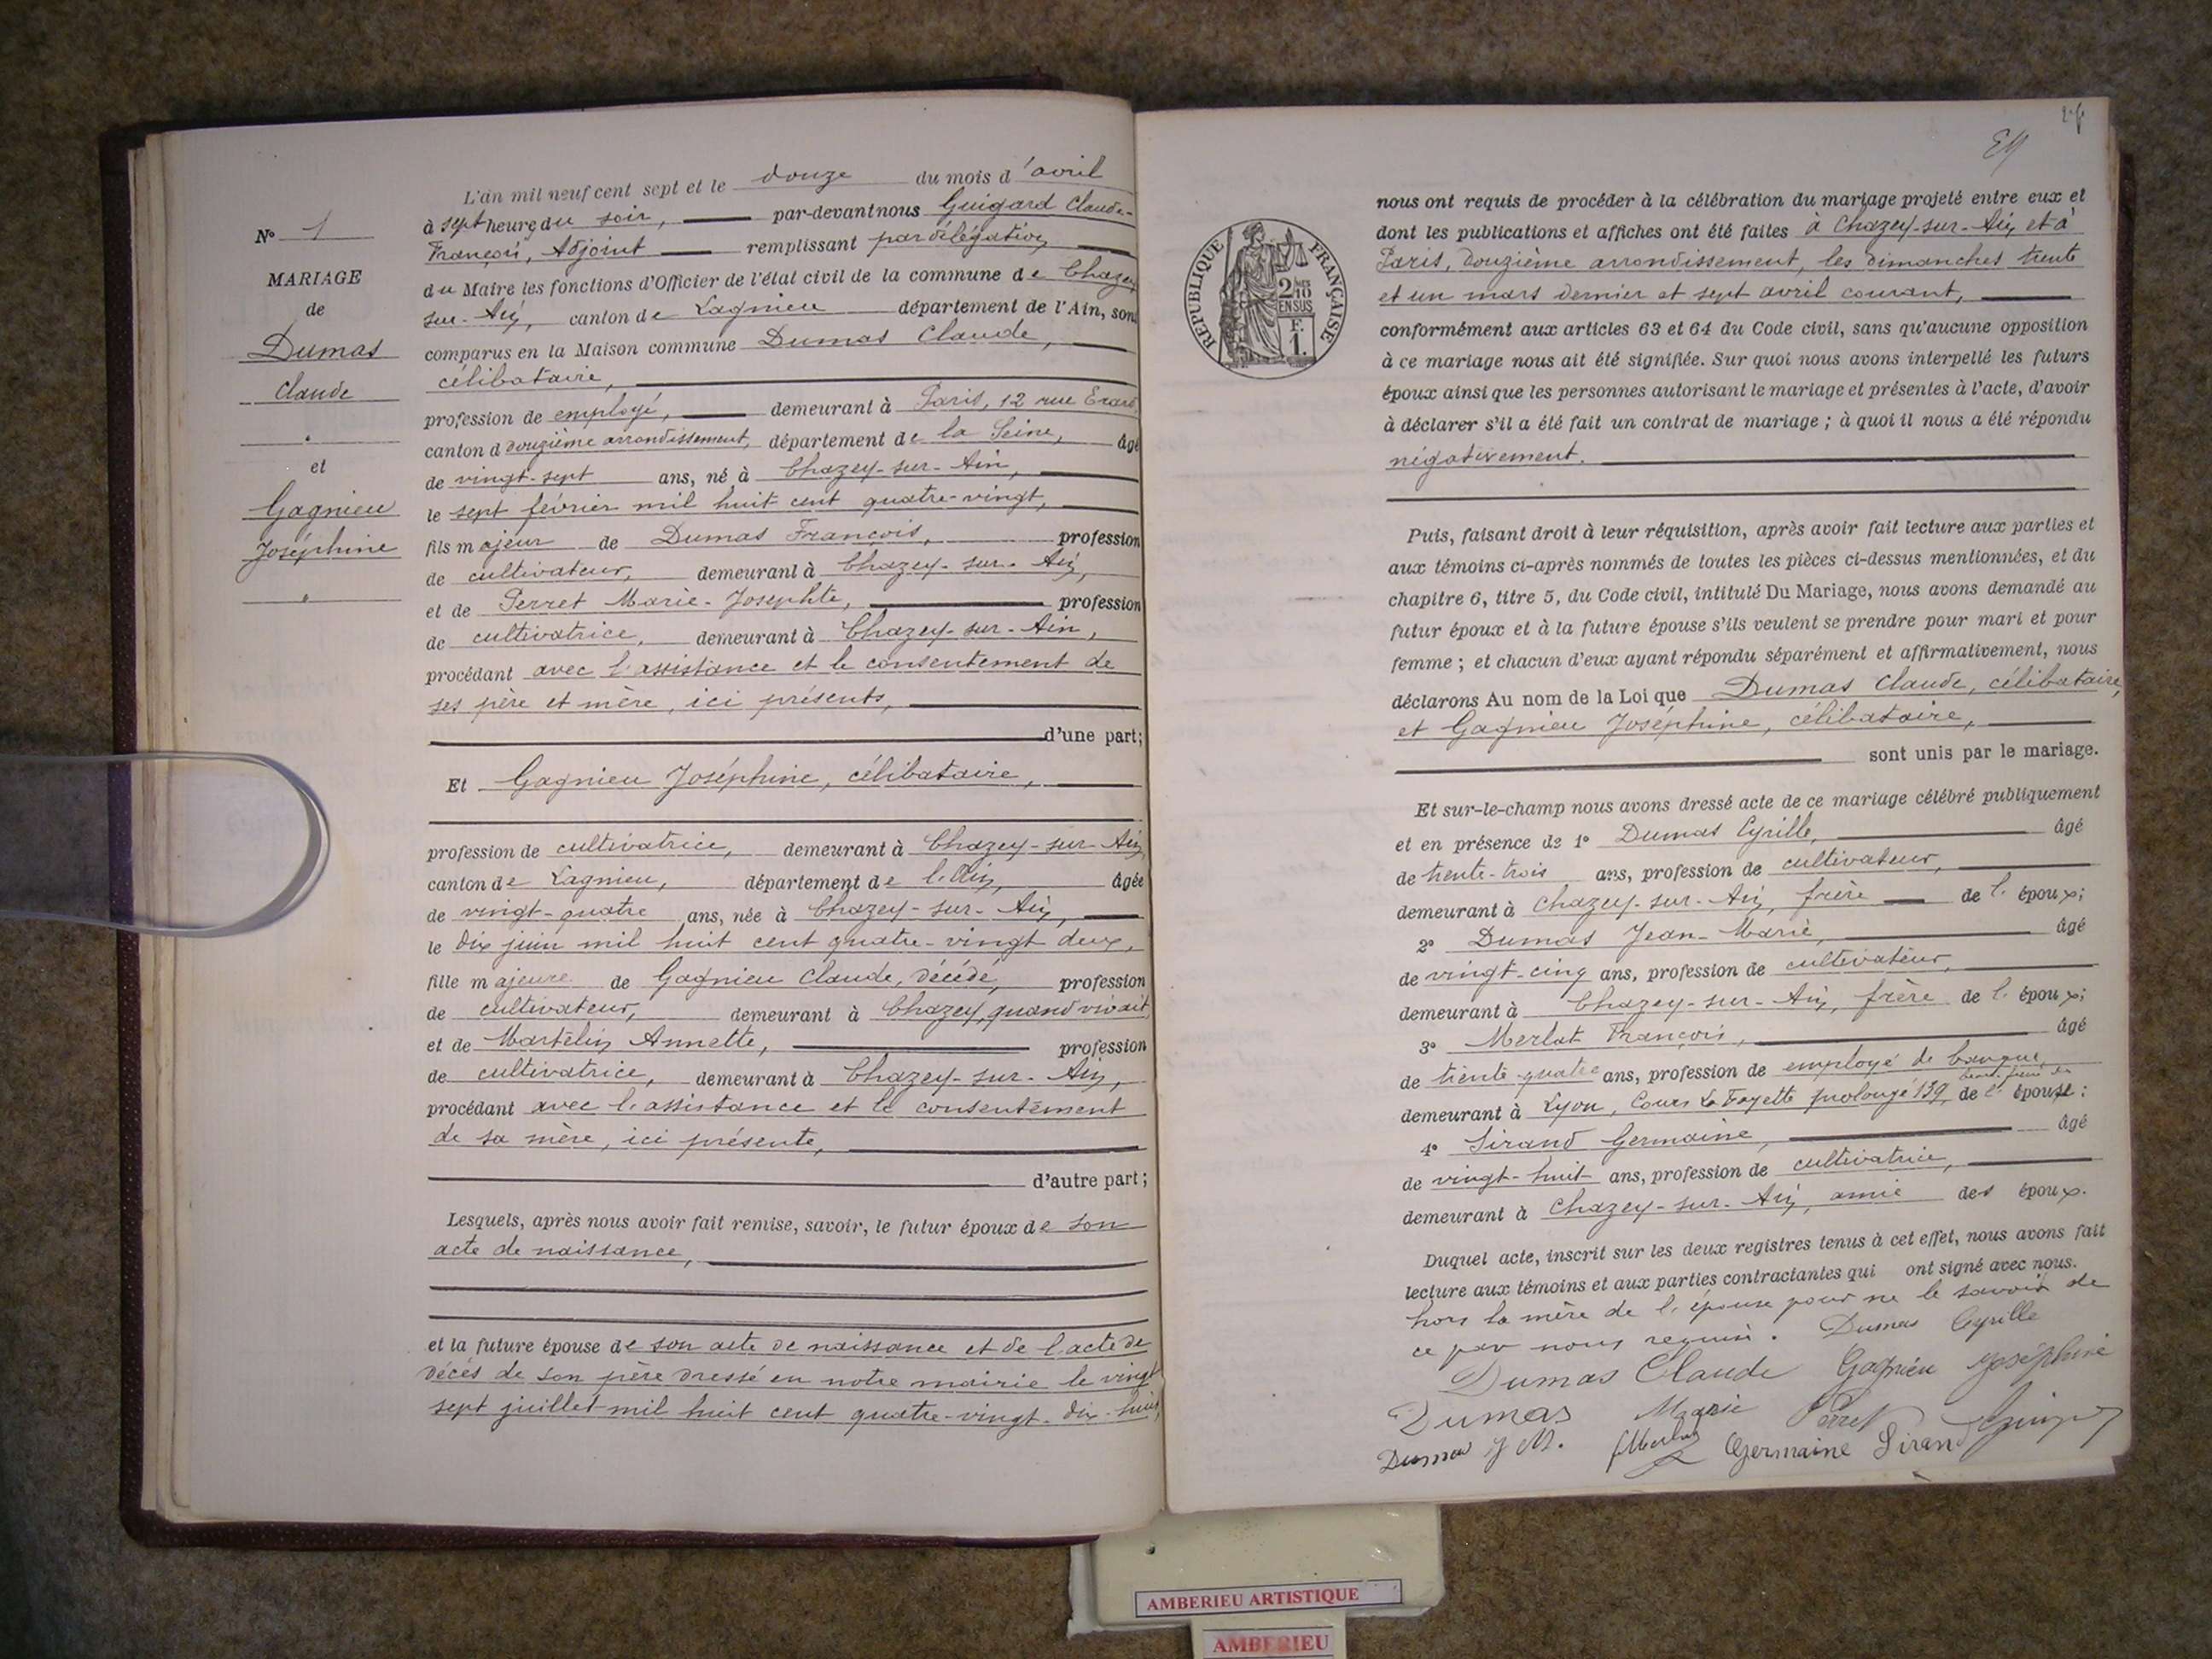 N° 1
MARIAGE
de
Dumas
Claude
et
Gagnieu
Joséphine
L'an mil neuf cent sept et le douze du mois d'avril
à sept heure du soir, par-devant nous Guigard Claude-
François, Adjoint remplissant par délégation
du Maire les fonctions d'Officier de l'état civil de la commune de Chazey
sur-Ain, canton de Lagnieu département de l'Ain, sont
comparus en la Maison commune Dumas Claude,
célibataire,
profession de employé, demeurant à Paris, 12 rue Erard,
canton d douzième arrondissement, département de la Seine, âgé
de vingt-sept ans, né à Chazey-sur-Ain,
le sept février mil huit cent quatre-vingt,
fils majeur de Dumas François, profession
de cultivateur, demeurant à Chazey-sur-Ain,
et de Perret Marie-Josephte, profession
de cultivatrice, demeurant à Chazey-sur-Ain,
procédant avec l'assistance et le consentement de
ses père et mère, ici présents,
d'une part;
Et Gagnieu Joséphine, célibataire,
profession de cultivatrice, demeurant à Chazey-sur-Ain
canton de Lagnieu, département de l'Ain, âgée
de vingt-quatre ans, née à Chazey-sur-Ain,
le dix juin mil huit cent quatre-vingt deux,
fille majeure de Gagnieu Claude, décédé, profession
de cultivateur, demeurant à Chazey, quand vivait
et de Martelin Annette, profession
de cultivatrice, demeurant à Chazey-sur-Ain,
procédant avec l'assistance et le consentement
de sa mère, ici présente,
d'autre part;
Lesquels, après nous avoir fait remise, savoir, le futur époux de son
acte de naissance,
et la future épouse de son acte de naissance et de l'acte de
décès de son père dressé en notre mairie le vingt
sept juillet mil huit cent quatre-vingt-dix-huit,
RÉPUBLIQUE FRANÇAISE
2/10
EN SUS
F.
1.
nous ont requis de procéder à la célébration du mariage projeté entre eux et
dont les publications et affiches ont été faites à Chazey-sur-Ain et à
Paris, douzième arrondissement, les dimanches trente
et un mars dernier et sept avril courant,
conformément aux articles 63 et 64 du Code civil, sans qu'aucune opposition
à ce mariage nous ait été signifiée. Sur quoi nous avons interpellé les futurs
époux ainsi que les personnes autorisant le mariage et présentes à l'acte, d'avoir
à déclarer s'il a été fait un contrat de mariage ; à quoi il nous a été répondu
négativement.
Puis, faisant droit à leur réquisition, après avoir fait lecture aux parties et
aux témoins ci-après nommés de toutes les pièces ci-dessus mentionnées, et du
chapitre 6, titre 5, du Code civil, intitulé Du Mariage, nous avons demandé au
futur époux et à la future épouse s'ils veulent se prendre pour mari et pour
femme ; et chacun d'eux ayant répondu séparément et affirmativement, nous
déclarons Au nom de la Loi que Dumas Claude, célibataire,
et Gagnieu Joséphine, célibataire,
sont unis par le mariage.
Et sur-le-champ nous avons dressé acte de ce mariage célébré publiquement
et en présence de 1° Dumas Cyrille, âgé
de trente-trois ans, profession de cultivateur,
demeurant à Chazey-sur-Ain, frère de l'époux;
2° Dumas Jean-Marie, âgé
de vingt-cinq ans, profession de cultivateur,
demeurant à Chazey-sur-Ain, frère de l'époux;
3° Merlat François, âgé
de trente-quatre ans, profession de employé de banque,
demeurant à Lyon, Cours La Fayette prolongé 139, beau-frère de l'épouse;
4° Sirand Germaine, âgé
de vingt-huit ans, profession de cultivatrice,
demeurant à Chazey-sur-Ain, amie des époux.
Duquel acte, inscrit sur les deux registres tenus à cet effet, nous avons fait
lecture aux témoins et aux parties contractantes qui ont signé avec nous.
hors la mère de l'épouse pour ne le savoir de
ce par nous requise. Dumas Cyrille
Dumas Claude Gagnieu Joséphine
Dumas Marie Perret
Dumas J M. Merlat Germaine Sirand
AMBERIEU ARTISTIQUE
AMBERIEU